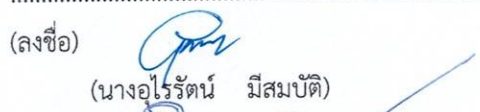 (ลงชื่อ)
(นางอุไรรัตน์ มีสมบัติ)